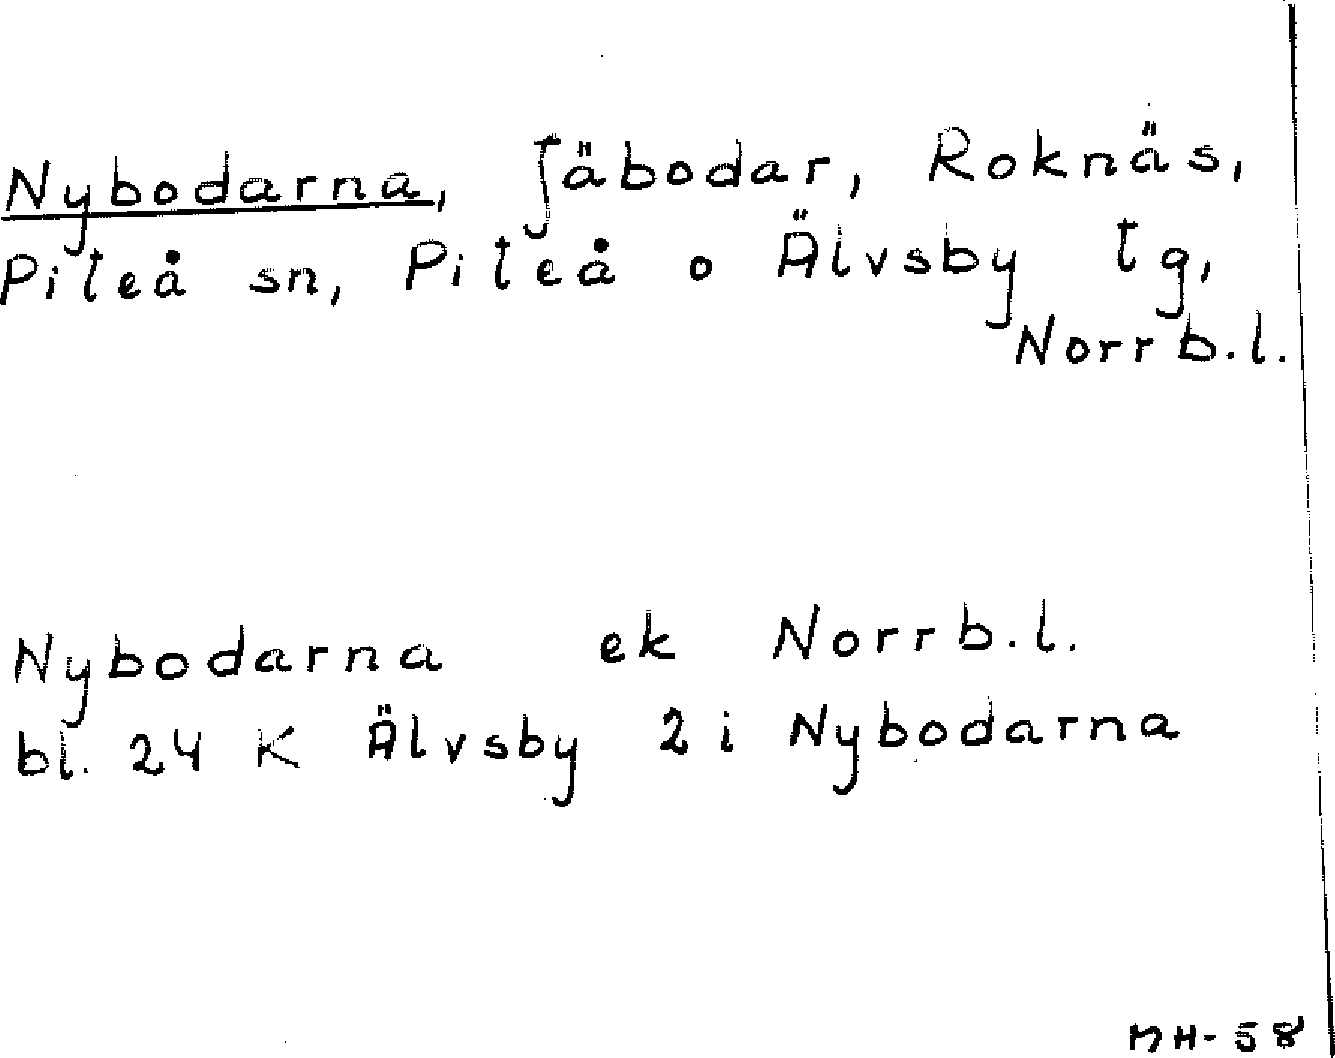 Nybodarna, fäbodar, Roknäs,
Piteå sn, Piteå o Älvsby tg,
Norrb.l.
Nybodarna ek Norrb.l.
bl. 24 K Älvsby 2 i Nybodarna
MH-58